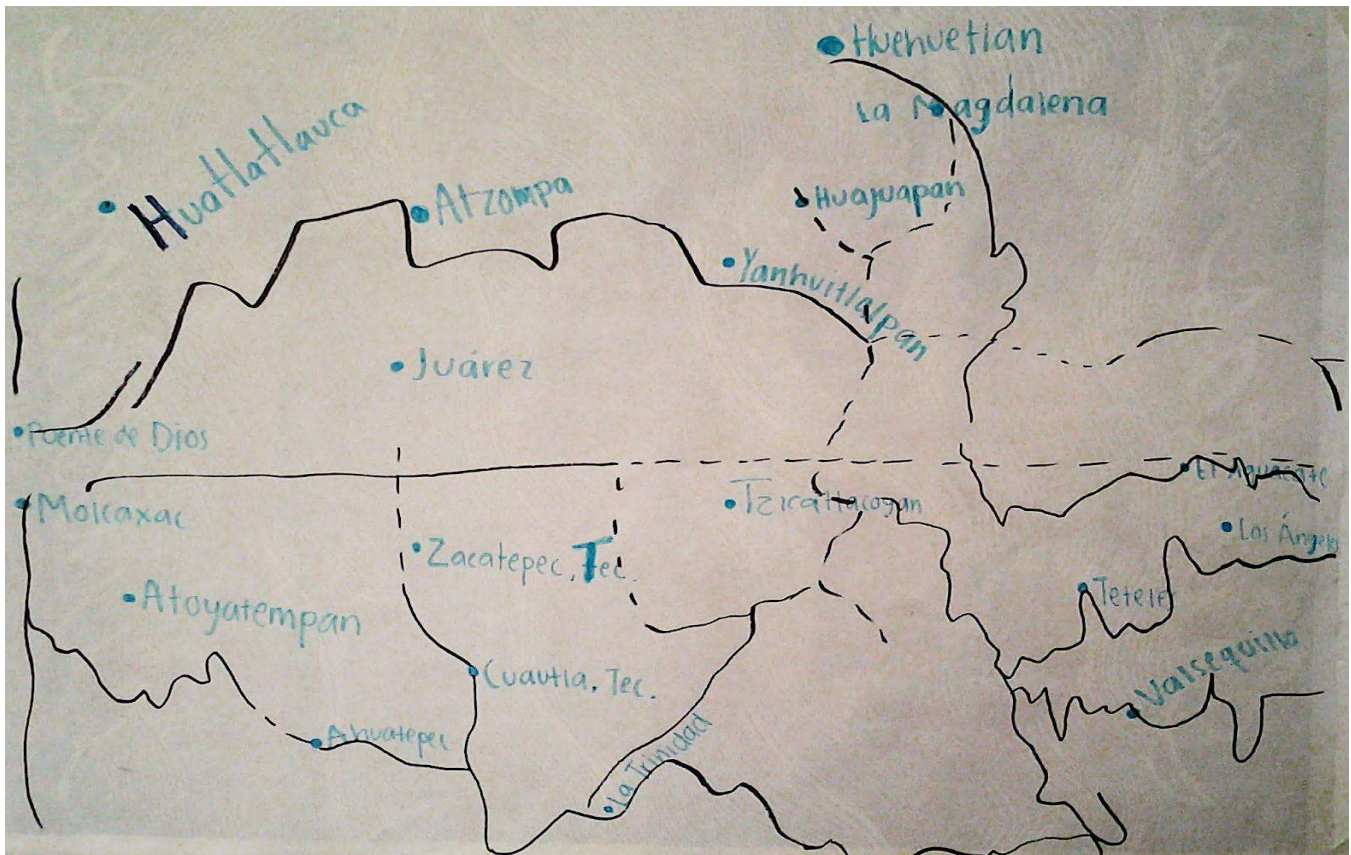 Huehuetlan
La Magdalena
Huatlatlauca
Atzompa
Huajuapan
Yanhuitlalpan
Juárez
Puente de Dios
El Aguacate
Molcaxac
Tzicatlacoyan
Los Ángeles
Zacatepec, Tec.
Atoyatempan
Tetela
Valsequillo
Cuautla, Tec.
Ahuatepec
La Trinidad